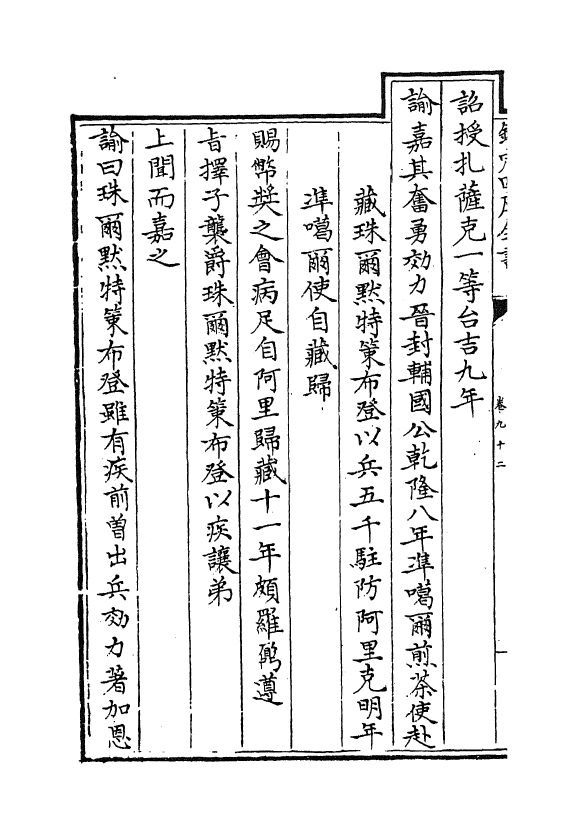 詔授扎薩克一等台吉九年
諭嘉其奮勇効力晉封輔國公乾隆八年準噶爾煎茶使赴
藏珠爾黙特策布登以兵五千駐防阿里克明年
準噶爾使自藏歸
賜幣奬之會病足自阿里歸藏十一年頗羅鼐遵
旨擇子襲爵珠爾黙特策布登以疾讓弟
上聞而嘉之
諭曰珠爾黙特策布登雖有疾前曽出兵効力著加恩
卷九十二